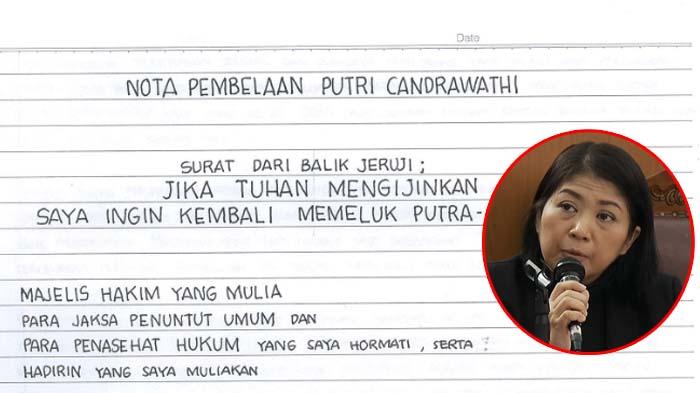 Date
NOTA PEMBELAAN PUTRI CANDRAWATHI
SURAT DARI BALIK JERUJI ;
JIKA TUHAN MENGIJINKAN
SAYA INGIN KEMBALI MEMELUK PUTRA-
MAJELIS HAKIM YANG MULIA
PARA JAKSA PENUNTUT UMUM DAN
PARA PENASEHAT HUKUM YANG SAYA HORMATI , SERTA :
HADIRIN YANG SAYA MULIAKAN